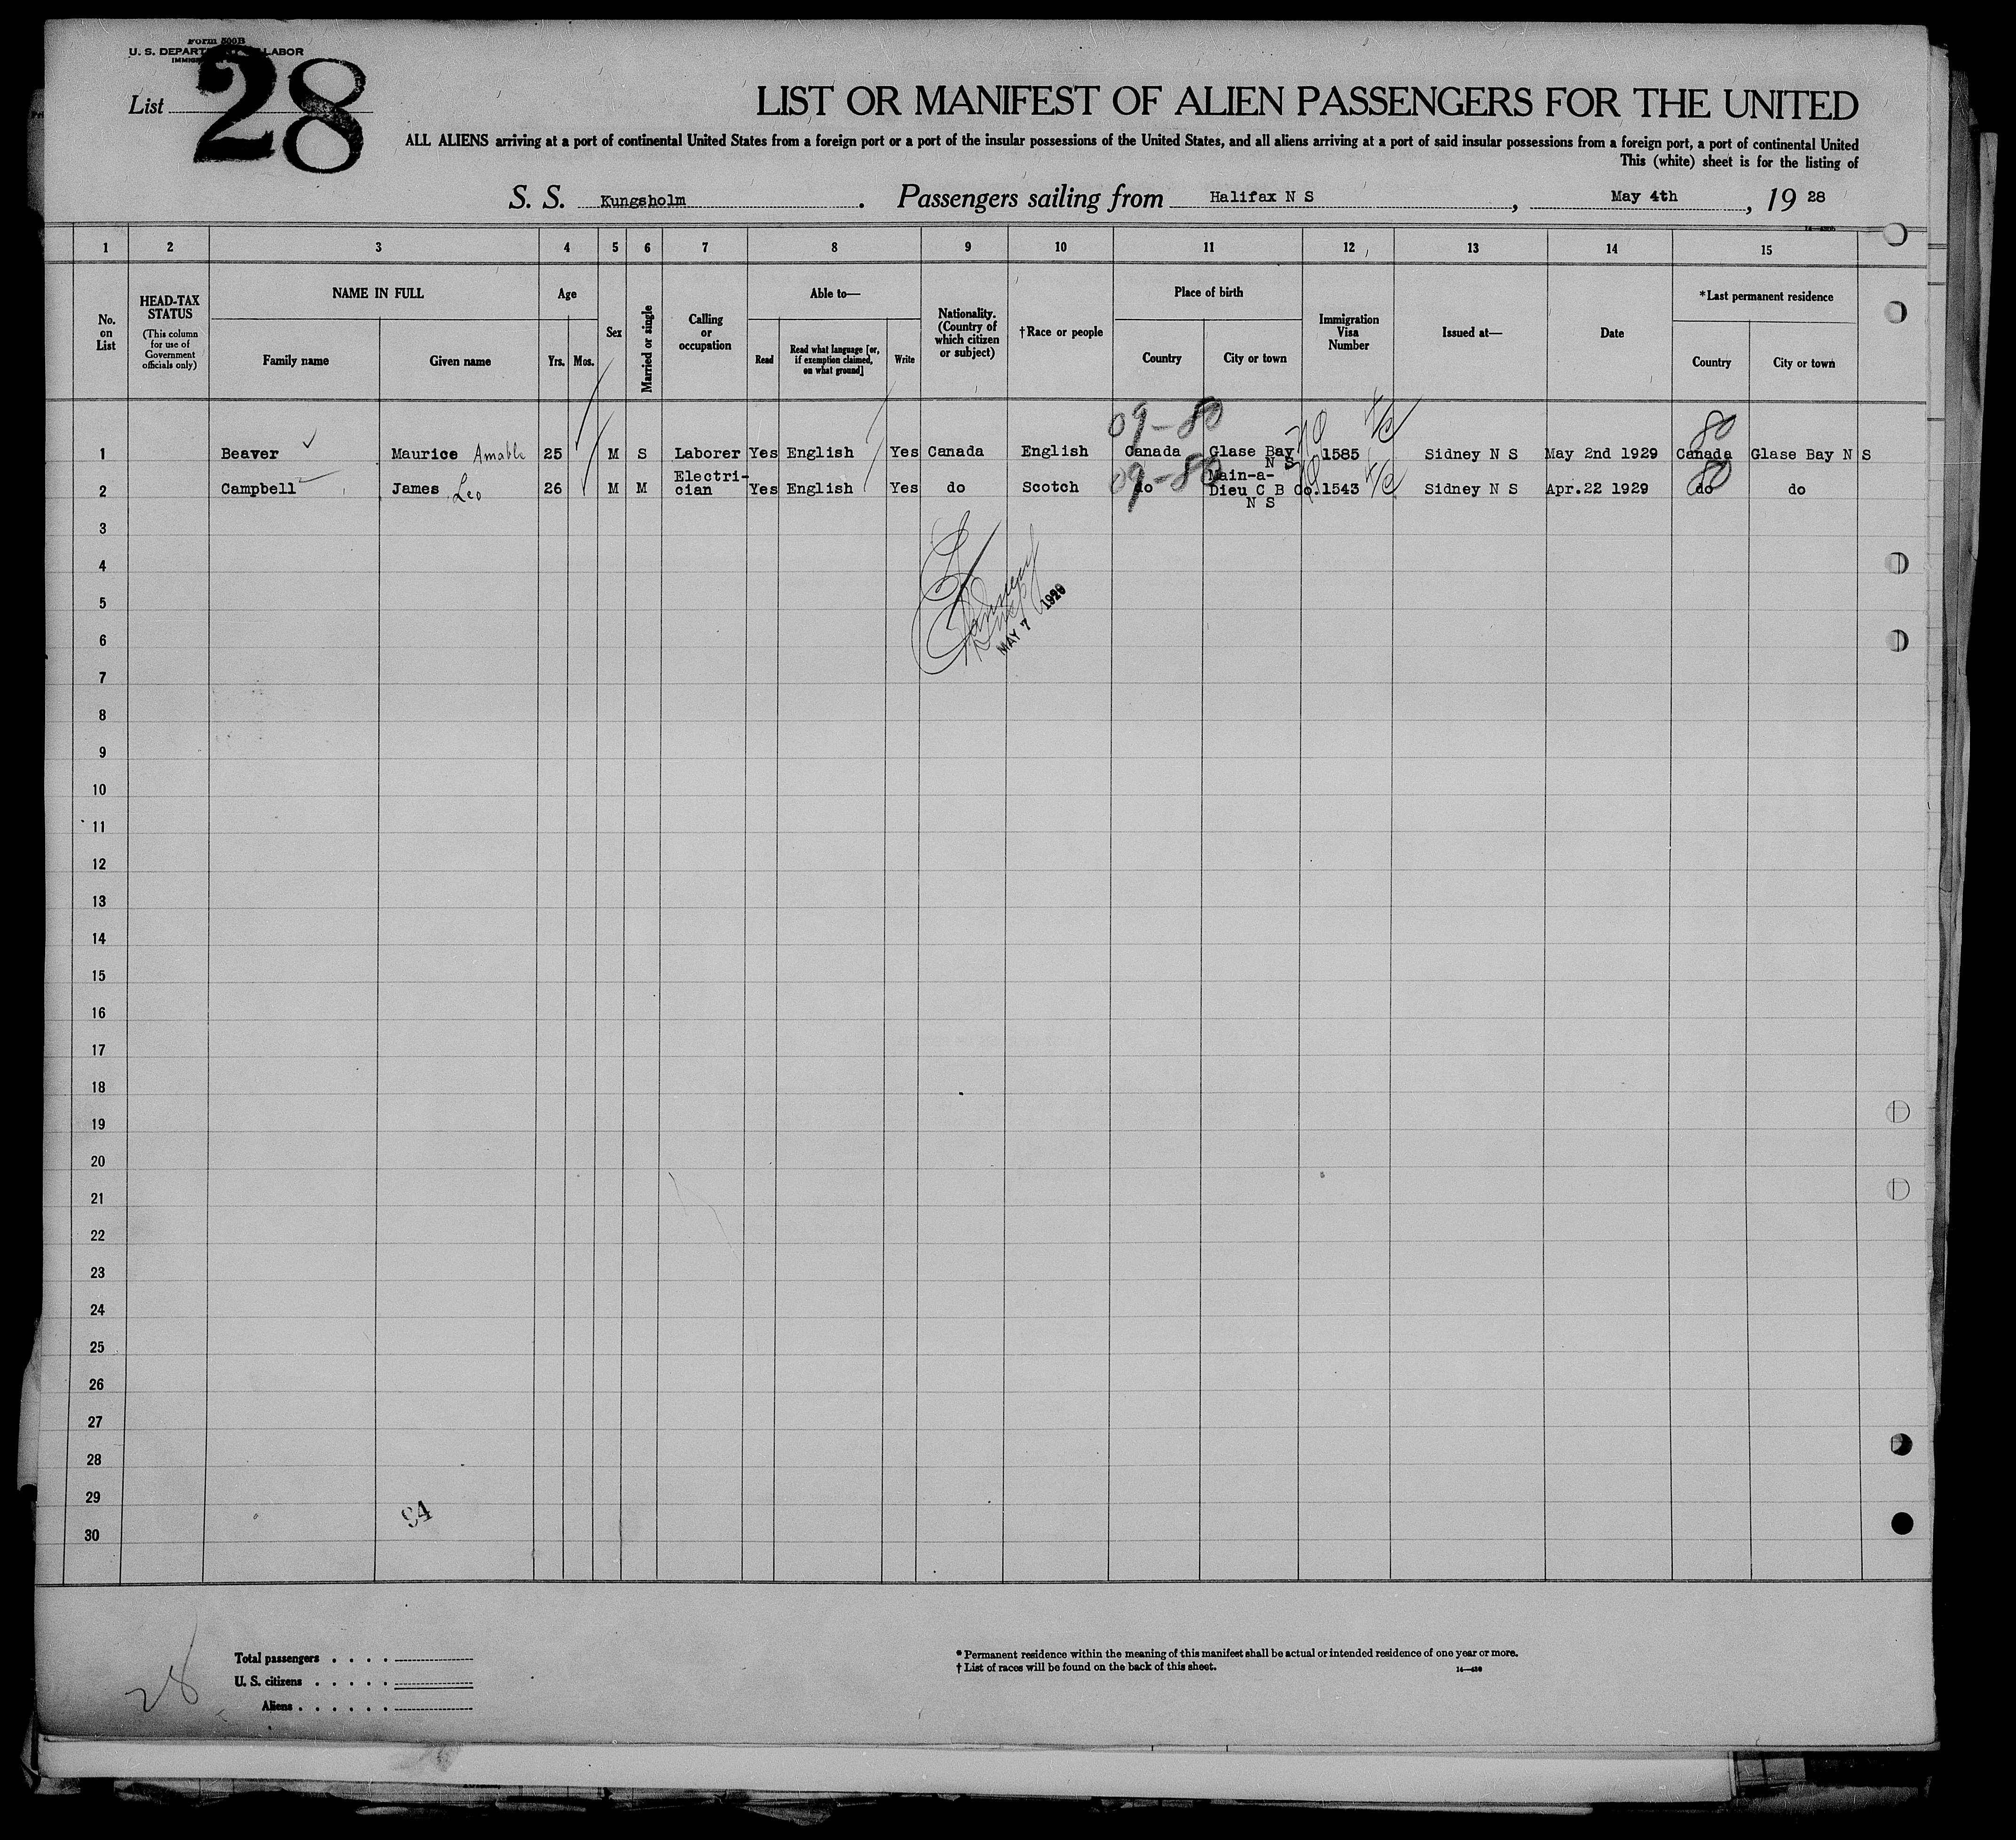 Form 500B
U. S. DEPARTMENT OF LABOR
List 28
LIST OR MANIFEST OF ALIEN PASSENGERS FOR THE UNITED
ALL ALIENS arriving at a port of continental United States from a foreign port or a port of the insular possessions of the United States, and all aliens arriving at a port of said insular possessions from a foreign port, a port of continental United
This (white) sheet is for the listing of
S. S. Kungsholm . Passengers sailing from Halifax N S , May 4th , 19 28
1 2 3 4 5 6 7 8 9 10 11 12 13 14 15
No. on List
HEAD-TAX STATUS
(This column for use of Government officials only)
NAME IN FULL
Family name Given name
Age
Yrs. Mos.
Sex
Married or single
Calling or occupation
Able to—
Read
Read what language [or, if exemption claimed, on what ground]
Write
Nationality. (Country of which citizen or subject)
†Race or people
Place of birth
Country City or town
Immigration Visa Number
Issued at—
Date
*Last permanent residence
Country City or town
09-80 80
1 Beaver Maurice Amable 25 M S Laborer Yes English Yes Canada English Canada Glase Bay N S 1585 Sidney N S May 2nd 1929 Canada Glase Bay N S
09-80 80
2 Campbell James Leo 26 M M Electri-cian Yes English Yes do Scotch do Main-a-Dieu C B Co. N S 1543 Sidney N S Apr.22 1929 do do
3
4
5
MAY 7
6
7
8
9
10
11
12
13
14
15
16
17
18
19
20
21
22
23
24
25
26
27
28
29
94
30
28
Total passengers . . . .
U. S. citizens . . . . .
Aliens . . . . . .
* Permanent residence within the meaning of this manifest shall be actual or intended residence of one year or more.
† List of races will be found on the back of this sheet.